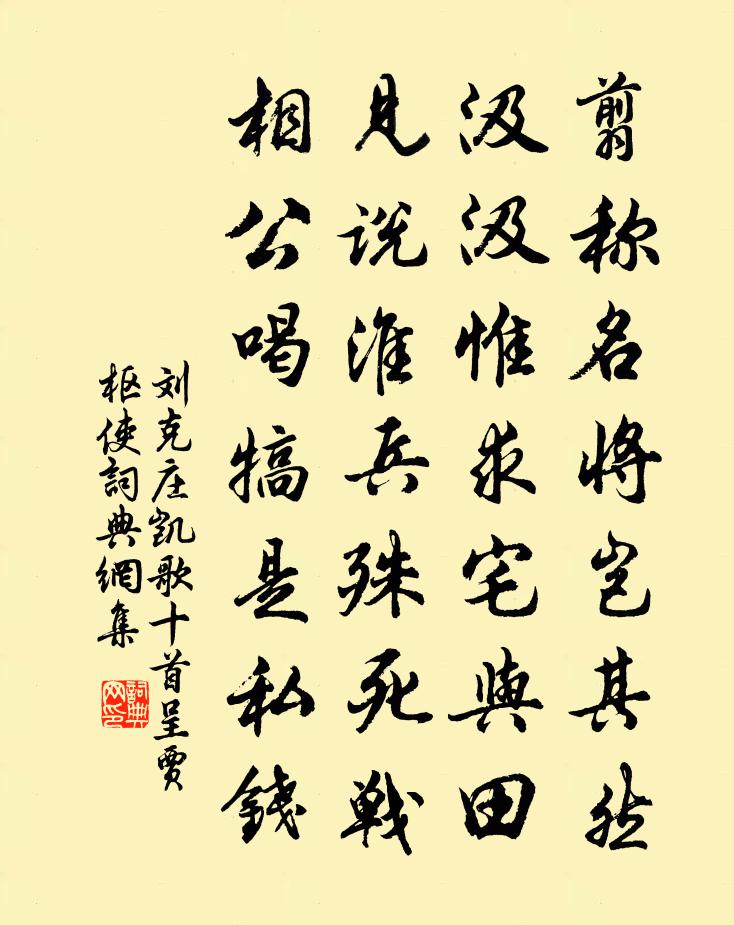 翦称名将岂其然
汲汲惟求宅與田
見说淮兵殊死戦
相公喝犒是私錢
刘克庄凯歌十首呈贾
枢使詞典網集
詞典网印